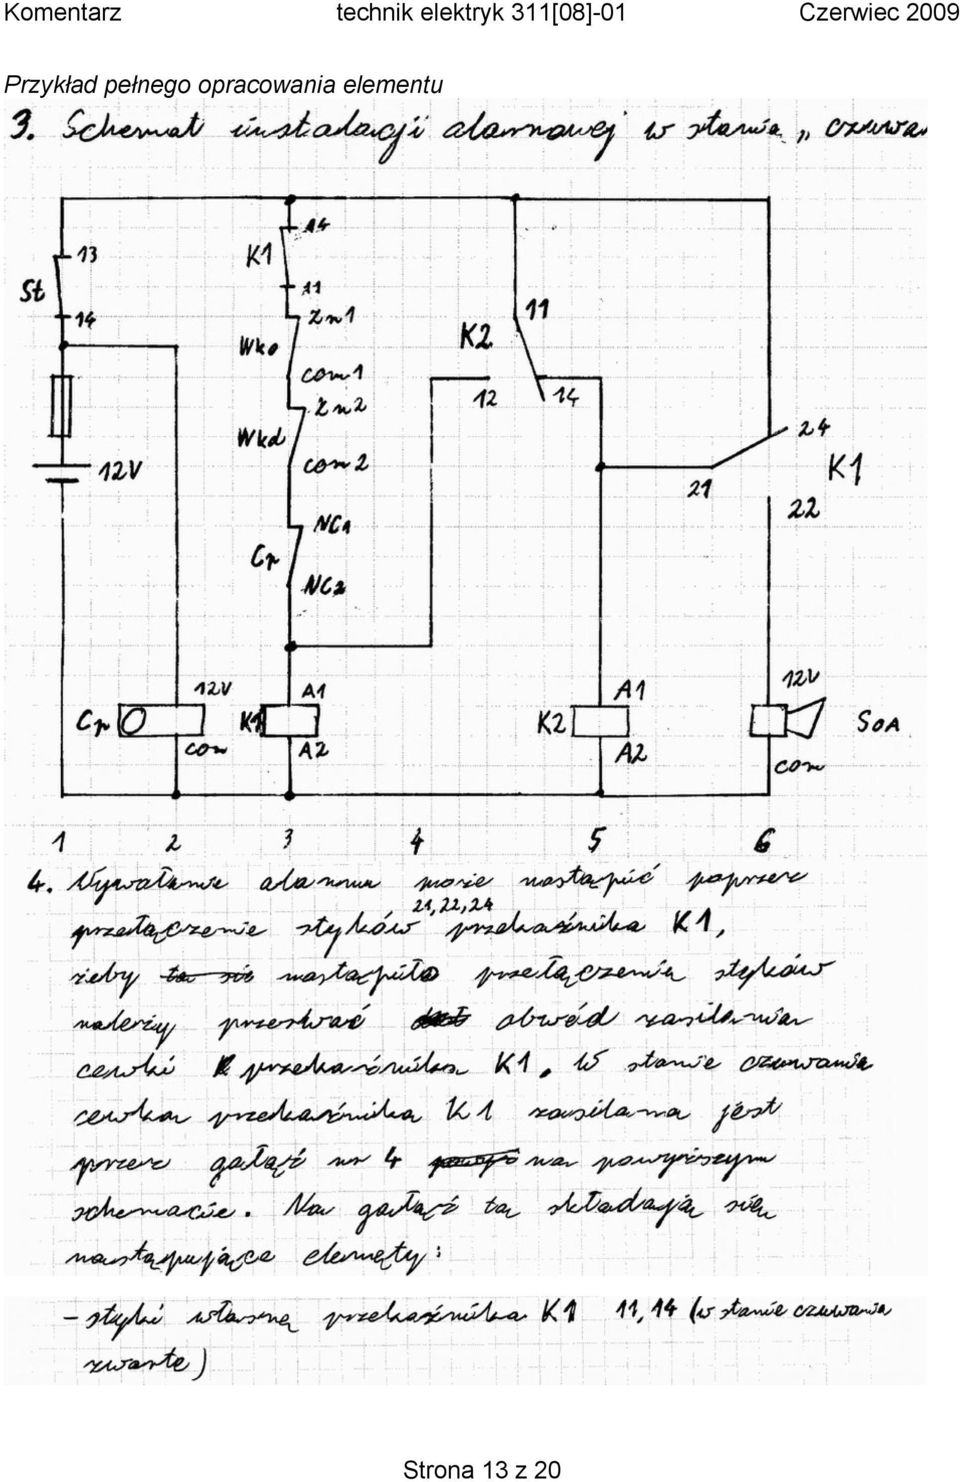 Komentarz technik elektryk 311[08]-01 Czerwiec 2009
Przykład pełnego opracowania elementu
3. Schemat instalacji alarmowej w stanie „ czuwa
14
13
K1
St
11
14
Zn1
11
Wko
K2
com1
12
14
Zn2
24
Wkd
12V
com2
K1
21
22
NC1
Cr
NC2
12V
A1
A1
12V
Cr
K1
K2
SOA
com
A2
A2
com
1 2 3 4 5 6
4. Wywołanie alarmu może nastąpić poprzez
21, 22, 24
przełączenie styków przekaźnika K1,
żeby nastąpiło przełączenia styków
należy przerwać obwód zasilania
cewki przekaźnika K1. W stanie czuwania
cewka przekaźnika K1 zasilana jest
przez gałąź nr 4 na powyższym
schemacie. Na gałąź tą składają się
następujące elemęty:
- styki własne przekaźnika K1 11, 14 (w stanie czuwania
zwarte)
Strona 13 z 20